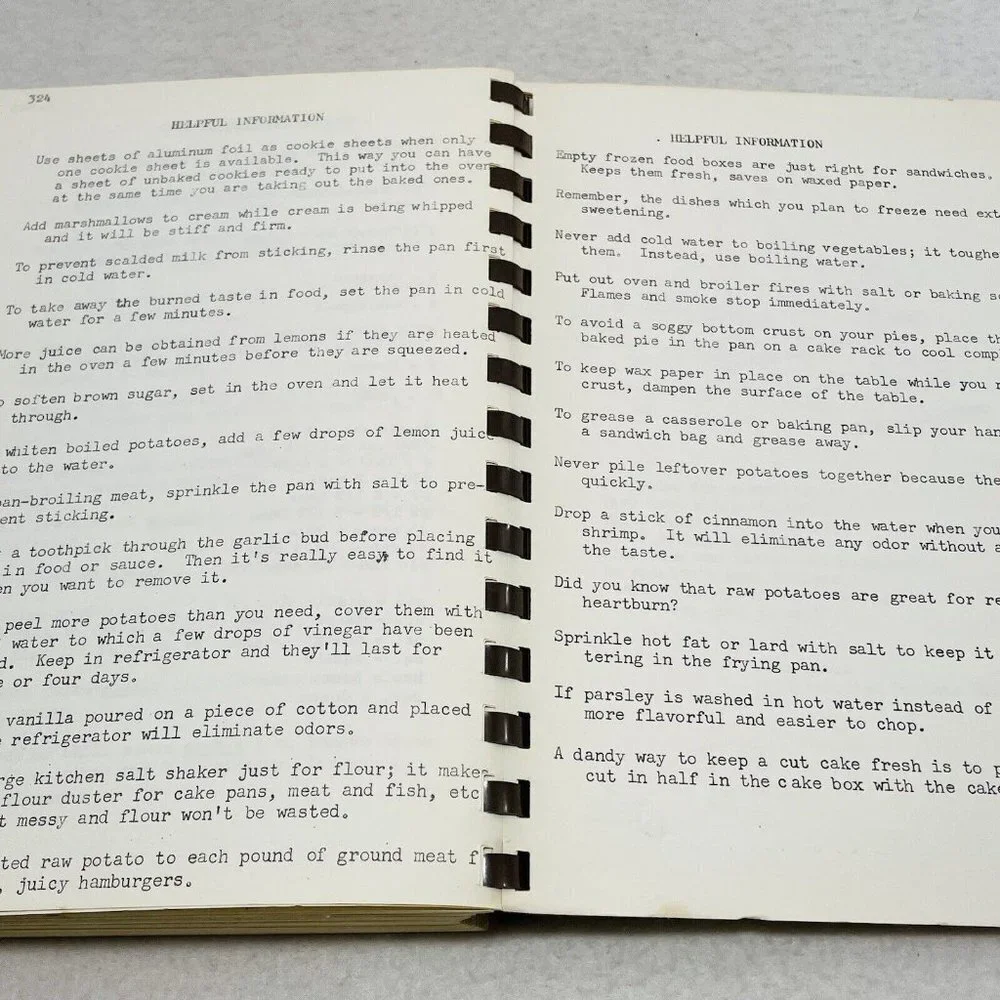 324
HELPFUL INFORMATION
Use sheets of aluminum foil as cookie sheets when only
one cookie sheet is available. This way you can have
a sheet of unbaked cookies ready to put into the oven
at the same time you are taking out the baked ones.
Add marshmallows to cream while cream is being whipped
and it will be stiff and firm.
To prevent scalded milk from sticking, rinse the pan first
in cold water.
To take away the burned taste in food, set the pan in cold
water for a few minutes.
More juice can be obtained from lemons if they are heated
in the oven a few minutes before they are squeezed.
soften brown sugar, set in the oven and let it heat
through.
whiten boiled potatoes, add a few drops of lemon juice
to the water.
pan-broiling meat, sprinkle the pan with salt to pre-
ent sticking.
a toothpick through the garlic bud before placing
in food or sauce. Then it's really easy to find it
en you want to remove it.
peel more potatoes than you need, cover them with
water to which a few drops of vinegar have been
d. Keep in refrigerator and they'll last for
e or four days.
vanilla poured on a piece of cotton and placed
refrigerator will eliminate odors.
rge kitchen salt shaker just for flour; it makes
flour duster for cake pans, meat and fish, etc
t messy and flour won't be wasted.
ted raw potato to each pound of ground meat f
, juicy hamburgers.
. HELPFUL INFORMATION
Empty frozen food boxes are just right for sandwiches.
Keeps them fresh, saves on waxed paper.
Remember, the dishes which you plan to freeze need ext
sweetening.
Never add cold water to boiling vegetables; it toughe
them. Instead, use boiling water.
Put out oven and broiler fires with salt or baking s
Flames and smoke stop immediately.
To avoid a soggy bottom crust on your pies, place th
baked pie in the pan on a cake rack to cool comp
To keep wax paper in place on the table while you r
crust, dampen the surface of the table.
To grease a casserole or baking pan, slip your han
a sandwich bag and grease away.
Never pile leftover potatoes together because the
quickly.
Drop a stick of cinnamon into the water when you
shrimp. It will eliminate any odor without a
the taste.
Did you know that raw potatoes are great for re
heartburn?
Sprinkle hot fat or lard with salt to keep it
tering in the frying pan.
If parsley is washed in hot water instead of
more flavorful and easier to chop.
A dandy way to keep a cut cake fresh is to p
cut in half in the cake box with the cake